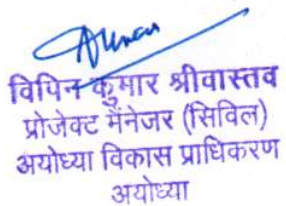 विपिन कुमार श्रीवास्तव
प्रोजेक्ट मैनेजर (सिविल)
अयोध्या विकास प्राधिकरण
अयोध्या